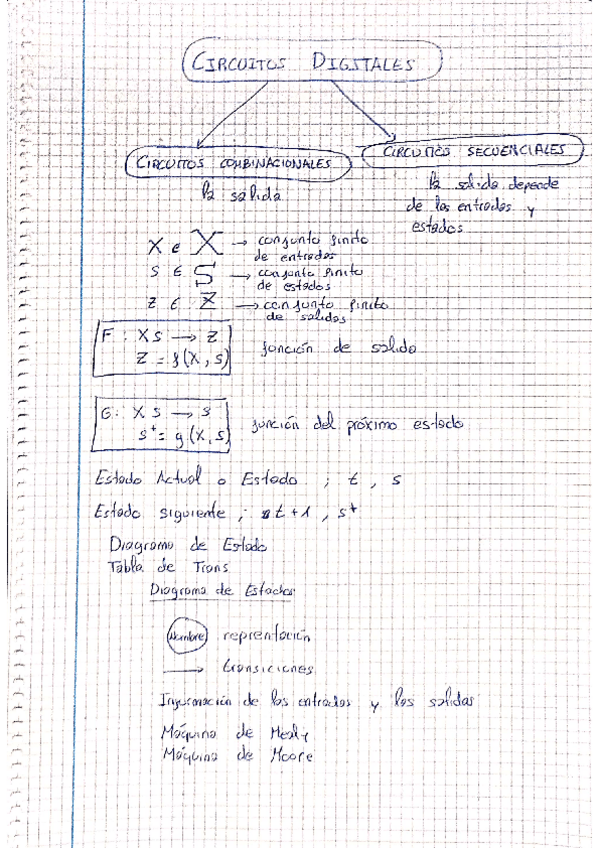 CIRCUITOS DIGITALES
CIRCUITOS COMBINACIONALES
CIRCUITOS SECUENCIALES
la salida
la salida depende
de las entradas y
estados
X ∈ X → conjunto finito
de entradas
s ∈ S → conjunto finito
de estados
z ∈ Z → conjunto finito
de salidas
F : X S → Z
Z = f(X, S)
función de salida
G : X S → S
s⁺ = g(X, S)
función del próximo estado
Estado Actual o Estado ; t , s
Estado siguiente ; t+1 , s⁺
Diagrama de Estado
Tabla de Trans
Diagrama de Estados
Nombre reprentación
→ transiciones
Información de las entradas y las salidas
Máquina de Mealy
Máquina de Moore